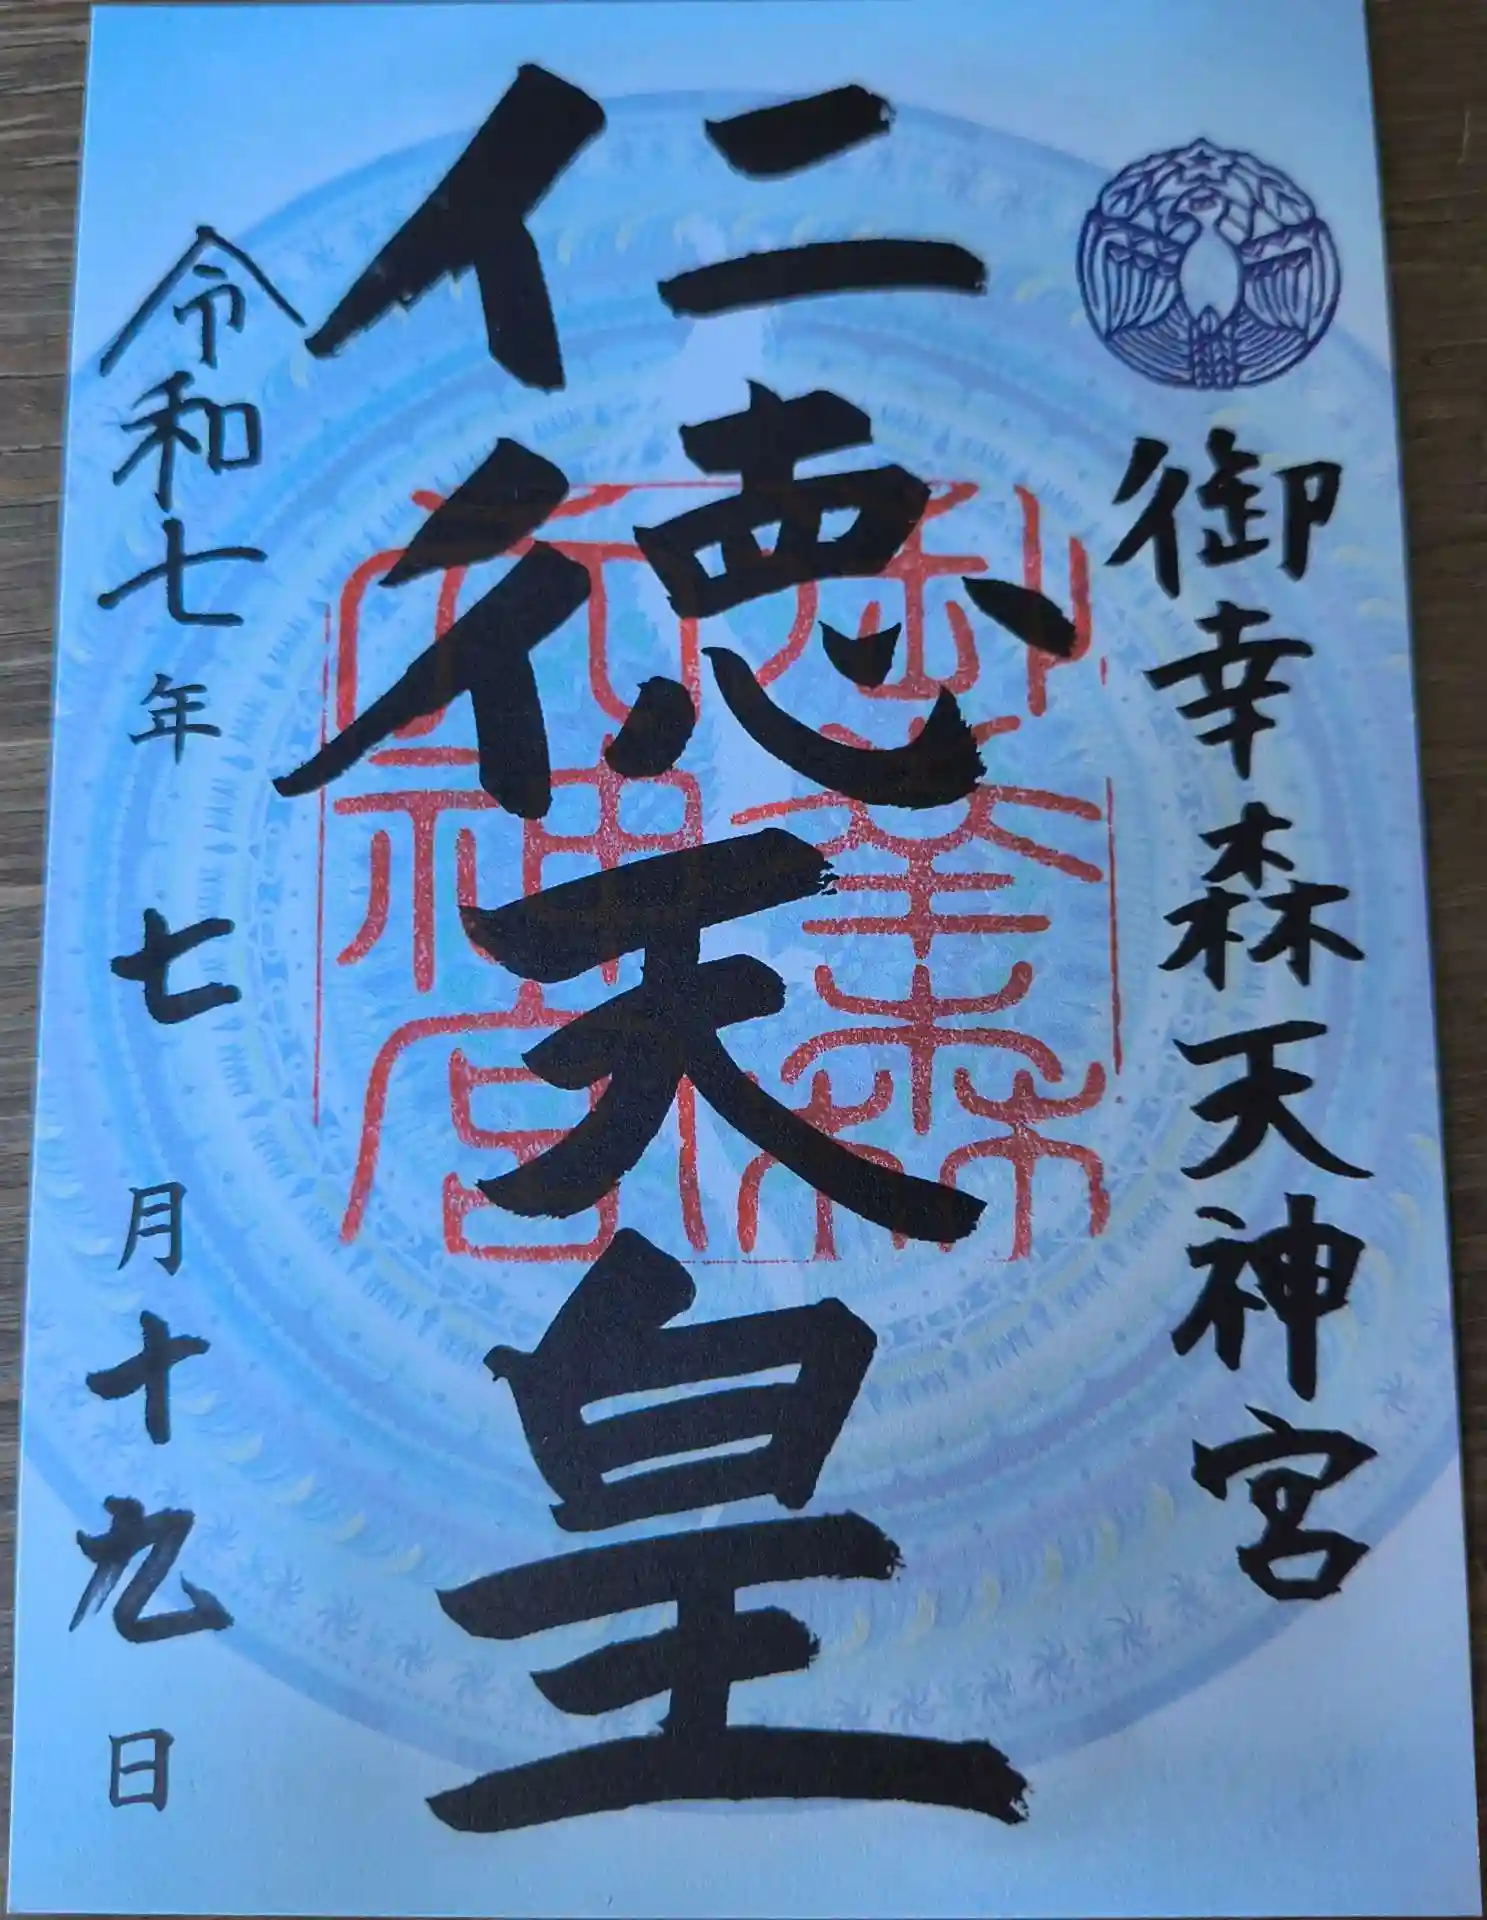 御幸森天神宮
仁徳天皇
御幸森天神宮
令和七年七月十九日